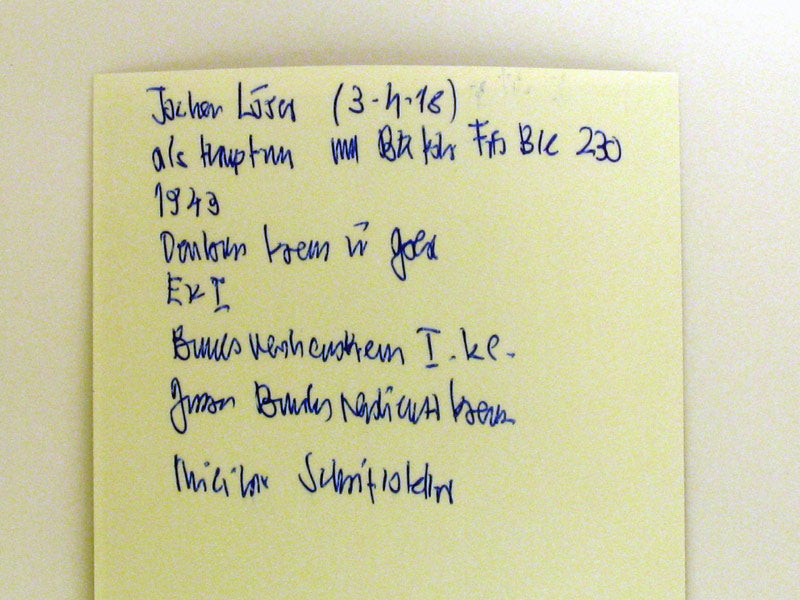 Jochen Löser (3-4-18)
als Hauptmann und Btl Kdr Füs Btl 230
1943
Deutsches Kreuz in Gold
EK I
Bundesverdienstkreuz I. Kl.
Grosses Bundesverdienstkreuz
Militär Schriftsteller